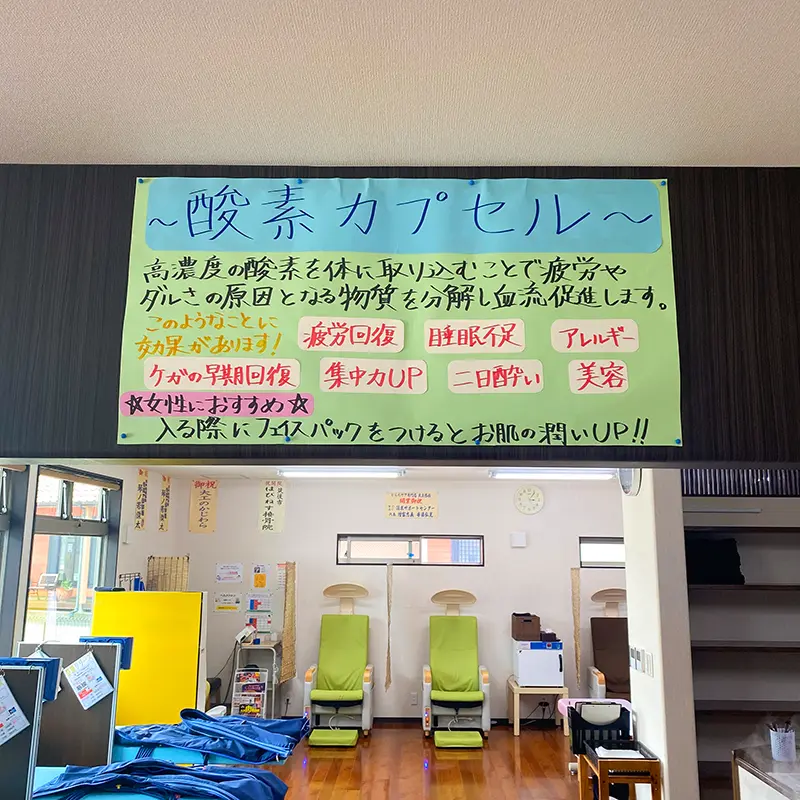 ～酸素カプセル～
高濃度の酸素を体に取り込むことで疲労や
ダルさの原因となる物質を分解し血流促進します。
このようなことに
効果があります!
疲労回復 睡眠不足 アレルギー
ケガの早期回復 集中力UP 二日酔い 美容
☆女性におすすめ☆
入る際にフェイスパックをつけるとお肌の潤いUP!!
御祝
大工のかじわら
はぴねす接骨院